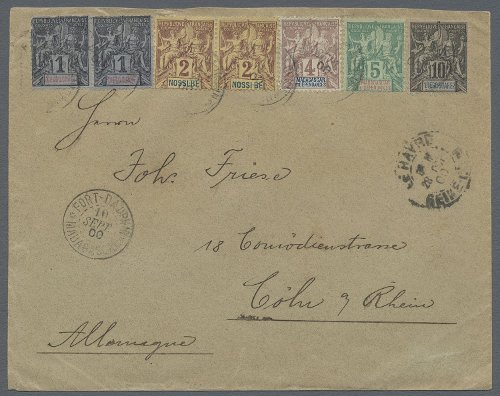 1 1 2 2 4 5 10
NOSSI-BÉ NOSSI-BÉ
Herrn
Joh. Friese
HAVRE
FORT-DAUPHIN
10
SEPT
00
MADAGASCAR
18 Comödienstrasse
Cöln a/ Rhein
Allemagne